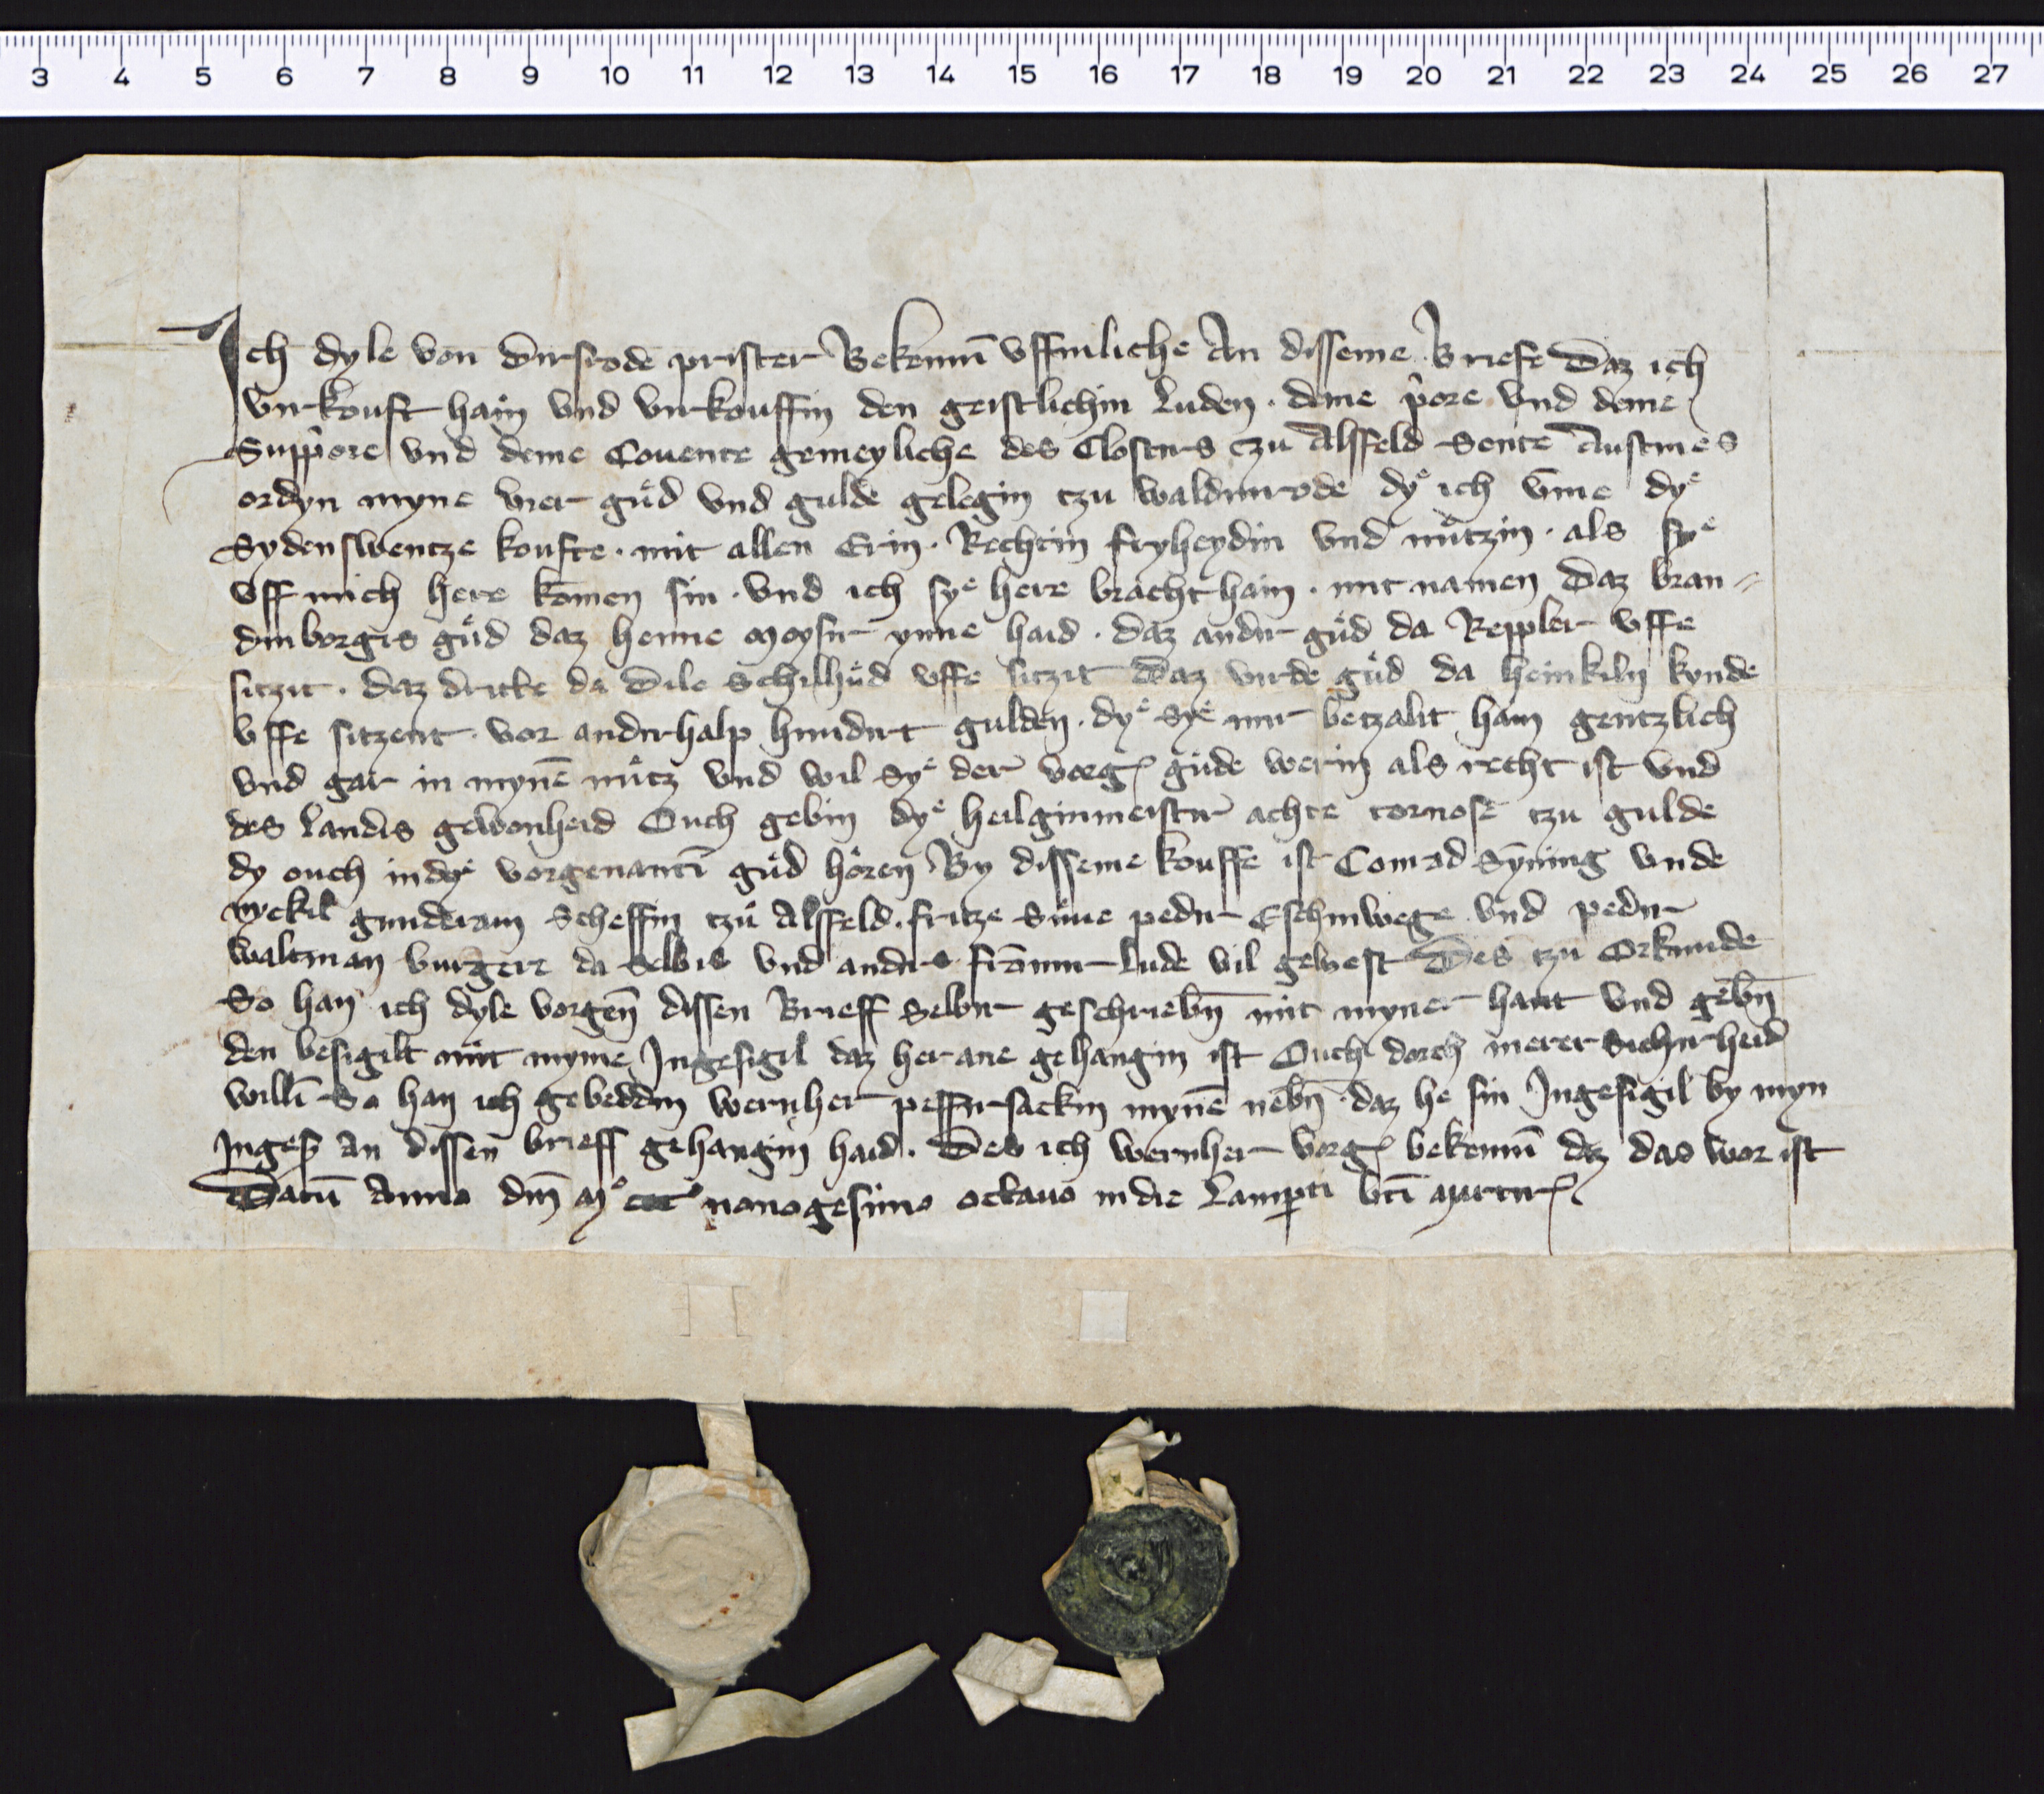 3 4 5 6 7 8 9 10 11 12 13 14 15 16 17 18 19 20 21 22 23 24 25 26 27
Ich dyle von Dirsrode prister Bekenni̅ vffinliche An disseme Briefe Daz ich
virkouft hain vnd virkouffin den geistlichin Luden · deme p̾ore vnd deme
Supp̾ore vnd deme Couente gemeyliche des Closters tzu Alsfeld Sente Austines
ordyn myne vier guͤd vnd gulde gelegin tzu Waldinrode dyͤ ich v̅me dyͤ
Sydenswentze koufte · mit allen Erin · Rechtin fryheydin vnd nuͤtzin · als syͤ
vff mich here komen sin · vnd ich syͤ here bracht hain · mit namen Daz bran-
dinborgis guͤd daz Henne Moysir ynne haid · daz andir guͤd da Reppler vffe
sitzit · daz dritte da Dile Schilhuͤd vffe sitzit Daz virde guͤd da heinkiln kynde
vffe sitzent · vor andirhalp hundirt gulden · dyͤ Syͤ mir betzalit hain gentzlich
vnd gar in myne̅ nuͤtz vnd wil Syͤ der vorg̅ gude werin als recht ist vnd
des landis gewonheid Ouch gebin dyͤ heilginmeistir achte tornose tzu gulde
dy ouch in dyͤ vorgenanti̅ guͤd hoͤren By disseme kouffe ist Conrad Syning vnde
nyckil gunderam Scheffin tzuͤ Alsfeld · fritze Suͤne pedir Eschinwege vnd pedir
waltman burgere da selbis vnd andirs fro̅mir lude vil gewest Des tzu Orkunde
So han ich dyle vorgen̅ dissen Brieff Selbir geschriebn̅ mit myner hant vnd gebn̅
den besigilt mit myme Ingesigil daz her ane gehangin ist Ouch dorch merer Sichirheid
willi̅ So han ich gebeddin wernher peffirsackin myne̅ nebn̅ daz he sin Ingesigil by myn
Inges̅ an dissen brieff gehangin haid · Des ich wernher vorg̅ bekenni̅ daz das wor ist
Datu̅ Anno dm̅ M° ccc° nonogesimo octauo in die Lamp̱ti bti̅ martir̅